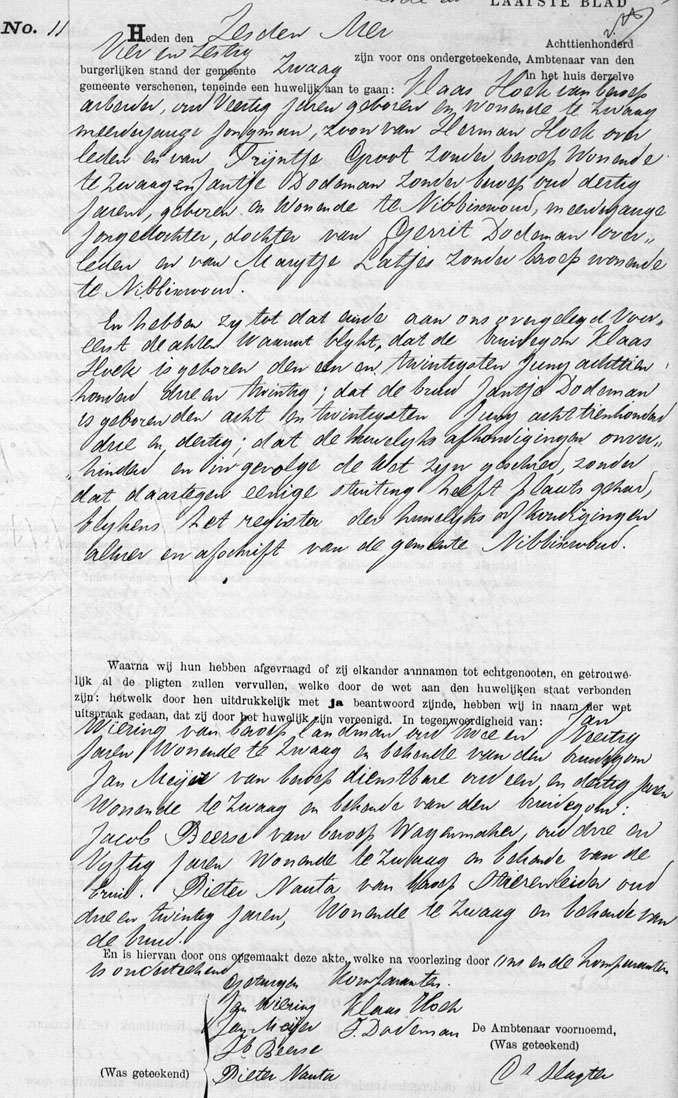 LAATSTE BLAD
No. 11
Heden den Zesden Mei Achttienhonderd
Vier en Zestig zijn voor ons ondergeteekende, Ambtenaar van den
burgerlijken stand der gemeente Zwaag in het huis derzelve
gemeente verschenen, teneinde een huwelijk aan te gaan: Klaas Hoek van beroep
arbeider, oud Veertig jaren geboren en Wonende te Zwaag
meerderjarige Jongman, zoon van Herman Hoek over
leden en van Trijntje Groot zonder beroep Wonende
te Zwaag en Jantje Dodeman zonder beroep oud dertig
Jaren, geboren en Wonende te Nibbixwoud, meerderjarige
Jongedochter, dochter van Gerrit Dodeman over„
leden en van Marijtje Latjes zonder beroep wonende
te Nibbixwoud.
En hebben zij tot dat einde aan ons overgelegd Voor„
eerst de akten waaruit blykt, dat de bruidegom Klaas
Hoek is geboren den een en twintigsten Juny achttien
honderd drie en twintig; dat de bruid Jantje Dodeman
is geboren den acht en twintigsten Juny achttienhonderd
drie en dertig; dat de huwelyks afkondigingen onver„
„hinderd en ingevolge de Wet zyn geschied, zonder
dat daartegen eenige stuiting heeft plaats gehad,
blykens het register der huwelyks afkondigingen
alhier en afschrift van de gemeente Nibbixwoud.
Waarna wij hun hebben afgevraagd of zij elkander aannamen tot echtgenooten, en getrouwe-
lijk al de pligten zullen vervullen, welke door de wet aan den huwelijken staat verbonden
zijn: hetwelk door hen uitdrukkelijk met ja beantwoord zijnde, hebben wij in naam der wet
uitspraak gedaan, dat zij door het huwelijk zijn vereenigd. In tegenwoordigheid van: Jan
Wiering van beroep Landman oud twee en Veertig
Jaren Wonende te Zwaag en behende van den bruidegom
Jan Meijer van beroep dienstbare oud een en dertig Jaren
Wonende te Zwaag en behende van den bruidegom:
Jacob Beerse van beroep Wagenmaker, oud drie en
Vyftig Jaren Wonende te Zwaag en behende van de
bruid. Pieter Nauta van beroep oud
drie en twintig Jaren, Wonende te Zwaag en behende van
de bruid.
En is hiervan door ons opgemaakt deze akte, welke na voorlezing door ons en de Komparanten
is onderteekend
Getuigen Komparanten
Jan Wiering Klaas Hoek
Jan Meijer J. Dodeman De Ambtenaar voornoemd,
Jb Beerse (Was geteekend)
(Was geteekend) Pieter Nauta Slagter